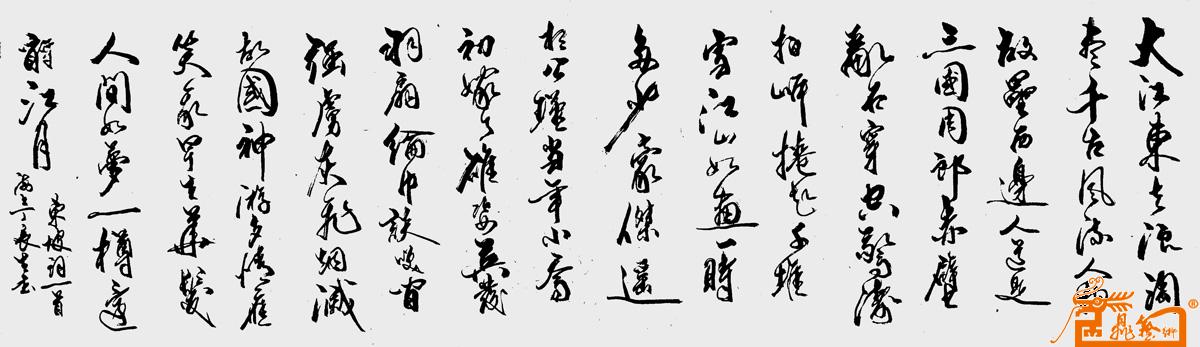 大江东去浪淘
尽千古风流人物
故垒西邊人道是
三國周郎赤壁
亂石穿空驚濤
拍岸捲起千堆
雪江山如画一時
多少豪傑遥
想公瑾当年小喬
初嫁了雄姿英發
羽扇綸巾談笑間
强虜灰飛烟滅
故國神游多情應
笑我早生華髮
人間如夢一樽還
酹江月
東坡詞一首
鼎藝術
®